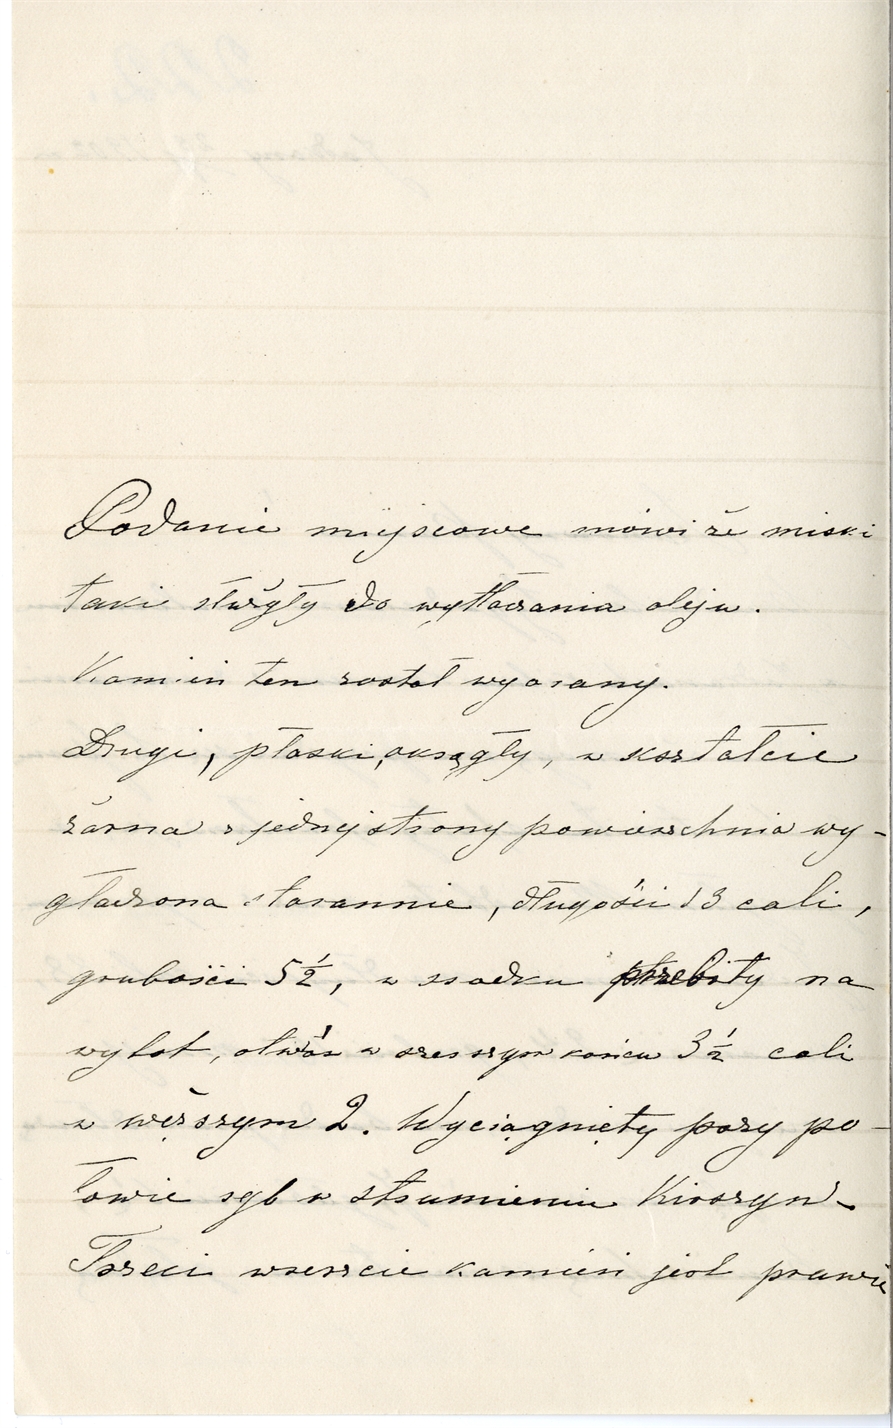 Podanie miejscowe mówi że miski
takie służyły do wytłaczania oleju.
Kamień ten został wyorany.
Drugi, płaski, okrągły, w kształcie
żarna z jednej strony powierzchnia wy-
gładzona starannie, długości 13 cali,
grubości 5½, w środku przebity na
wylot, otwór w szerszym końcu 3½ cali
w węższym 2. Wyciągnięty przy po-
łowie ryb w strumieniu
Trzeci wreszcie kamień jest prawie